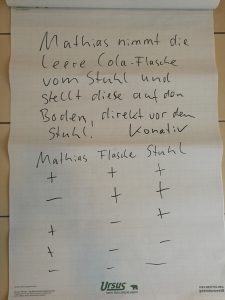 Mathias nimmt die
leere Cola-Flasche
vom Stuhl und
stellt diese auf den
Boden, direkt vor dem
Stuhl. Konativ
Mathias Flasche Stuhl
+ + +
- + +
+
+
+ -
- - -
Ursus